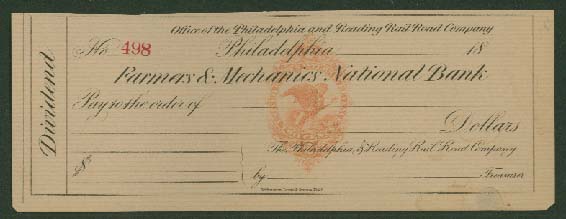 Office of the Philadelphia and Reading Rail Road Company
No. 498 Philadelphia 18
Farmers & Mechanics National Bank
Pay to the order of
Dollars
The Philadelphia & Reading Rail Road Company
$ by Treasurer
Dividend